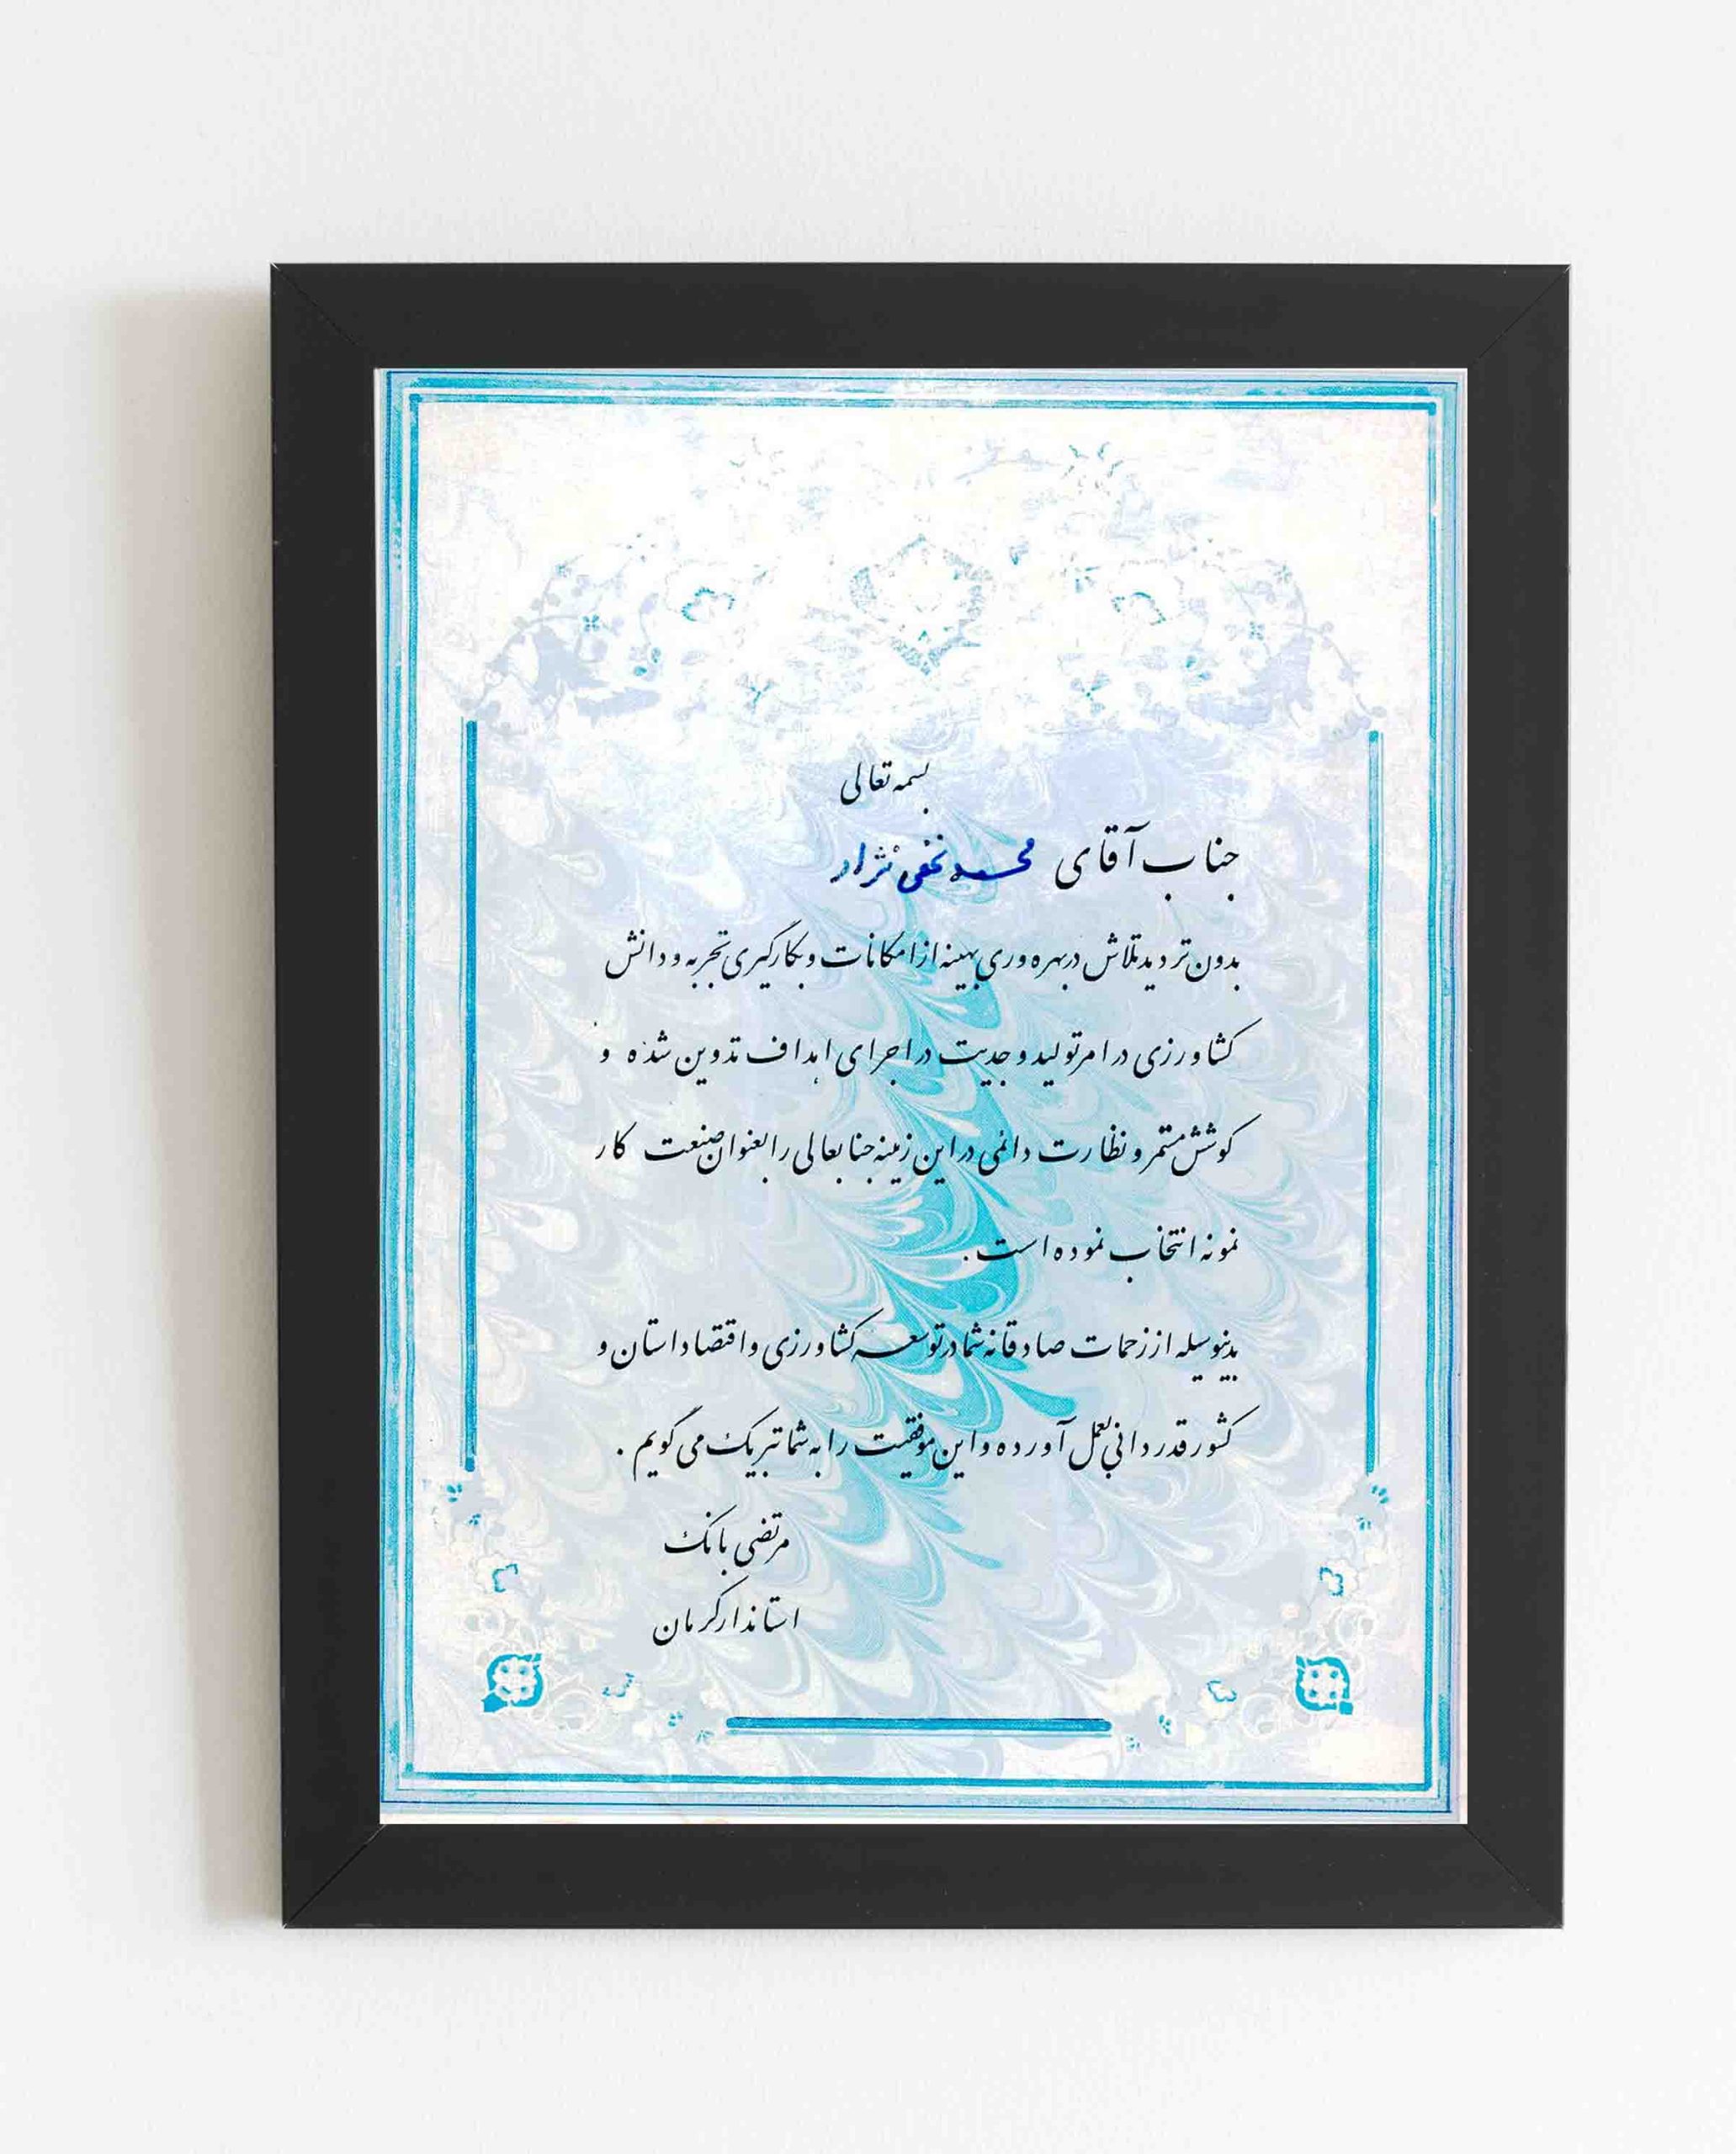 بسمه تعالی
جناب آقای محمد نخعی نژاد
بدون تردید تلاش در بهره وری بهینه از امکانات و بکارگیری تجربه و دانش
کشاورزی در امر تولید و جدیت در اجرای اهداف تدوین شده و
کوشش مستمر و نظارت دائمی در این زمینه جنابعالی را بعنوان صنعت کار
نمونه انتخاب نموده است.
بدینوسیله از زحمات صادقانه شما در توسعه کشاورزی و اقتصاد استان و
کشور قدردانی بعمل آورده و این موفقیت را به شما تبریک می گویم.
مرتضی بانک
استاندار کرمان